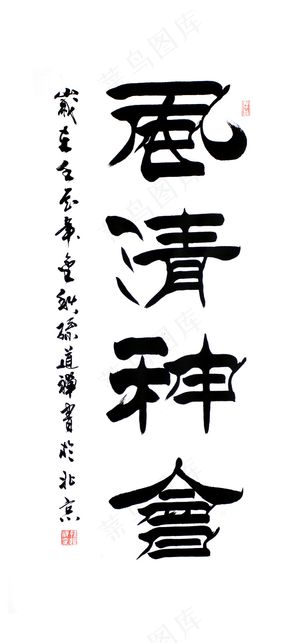 風清神會
歲在壬辰年金秋孫道禪書於北京
菜鸟图库